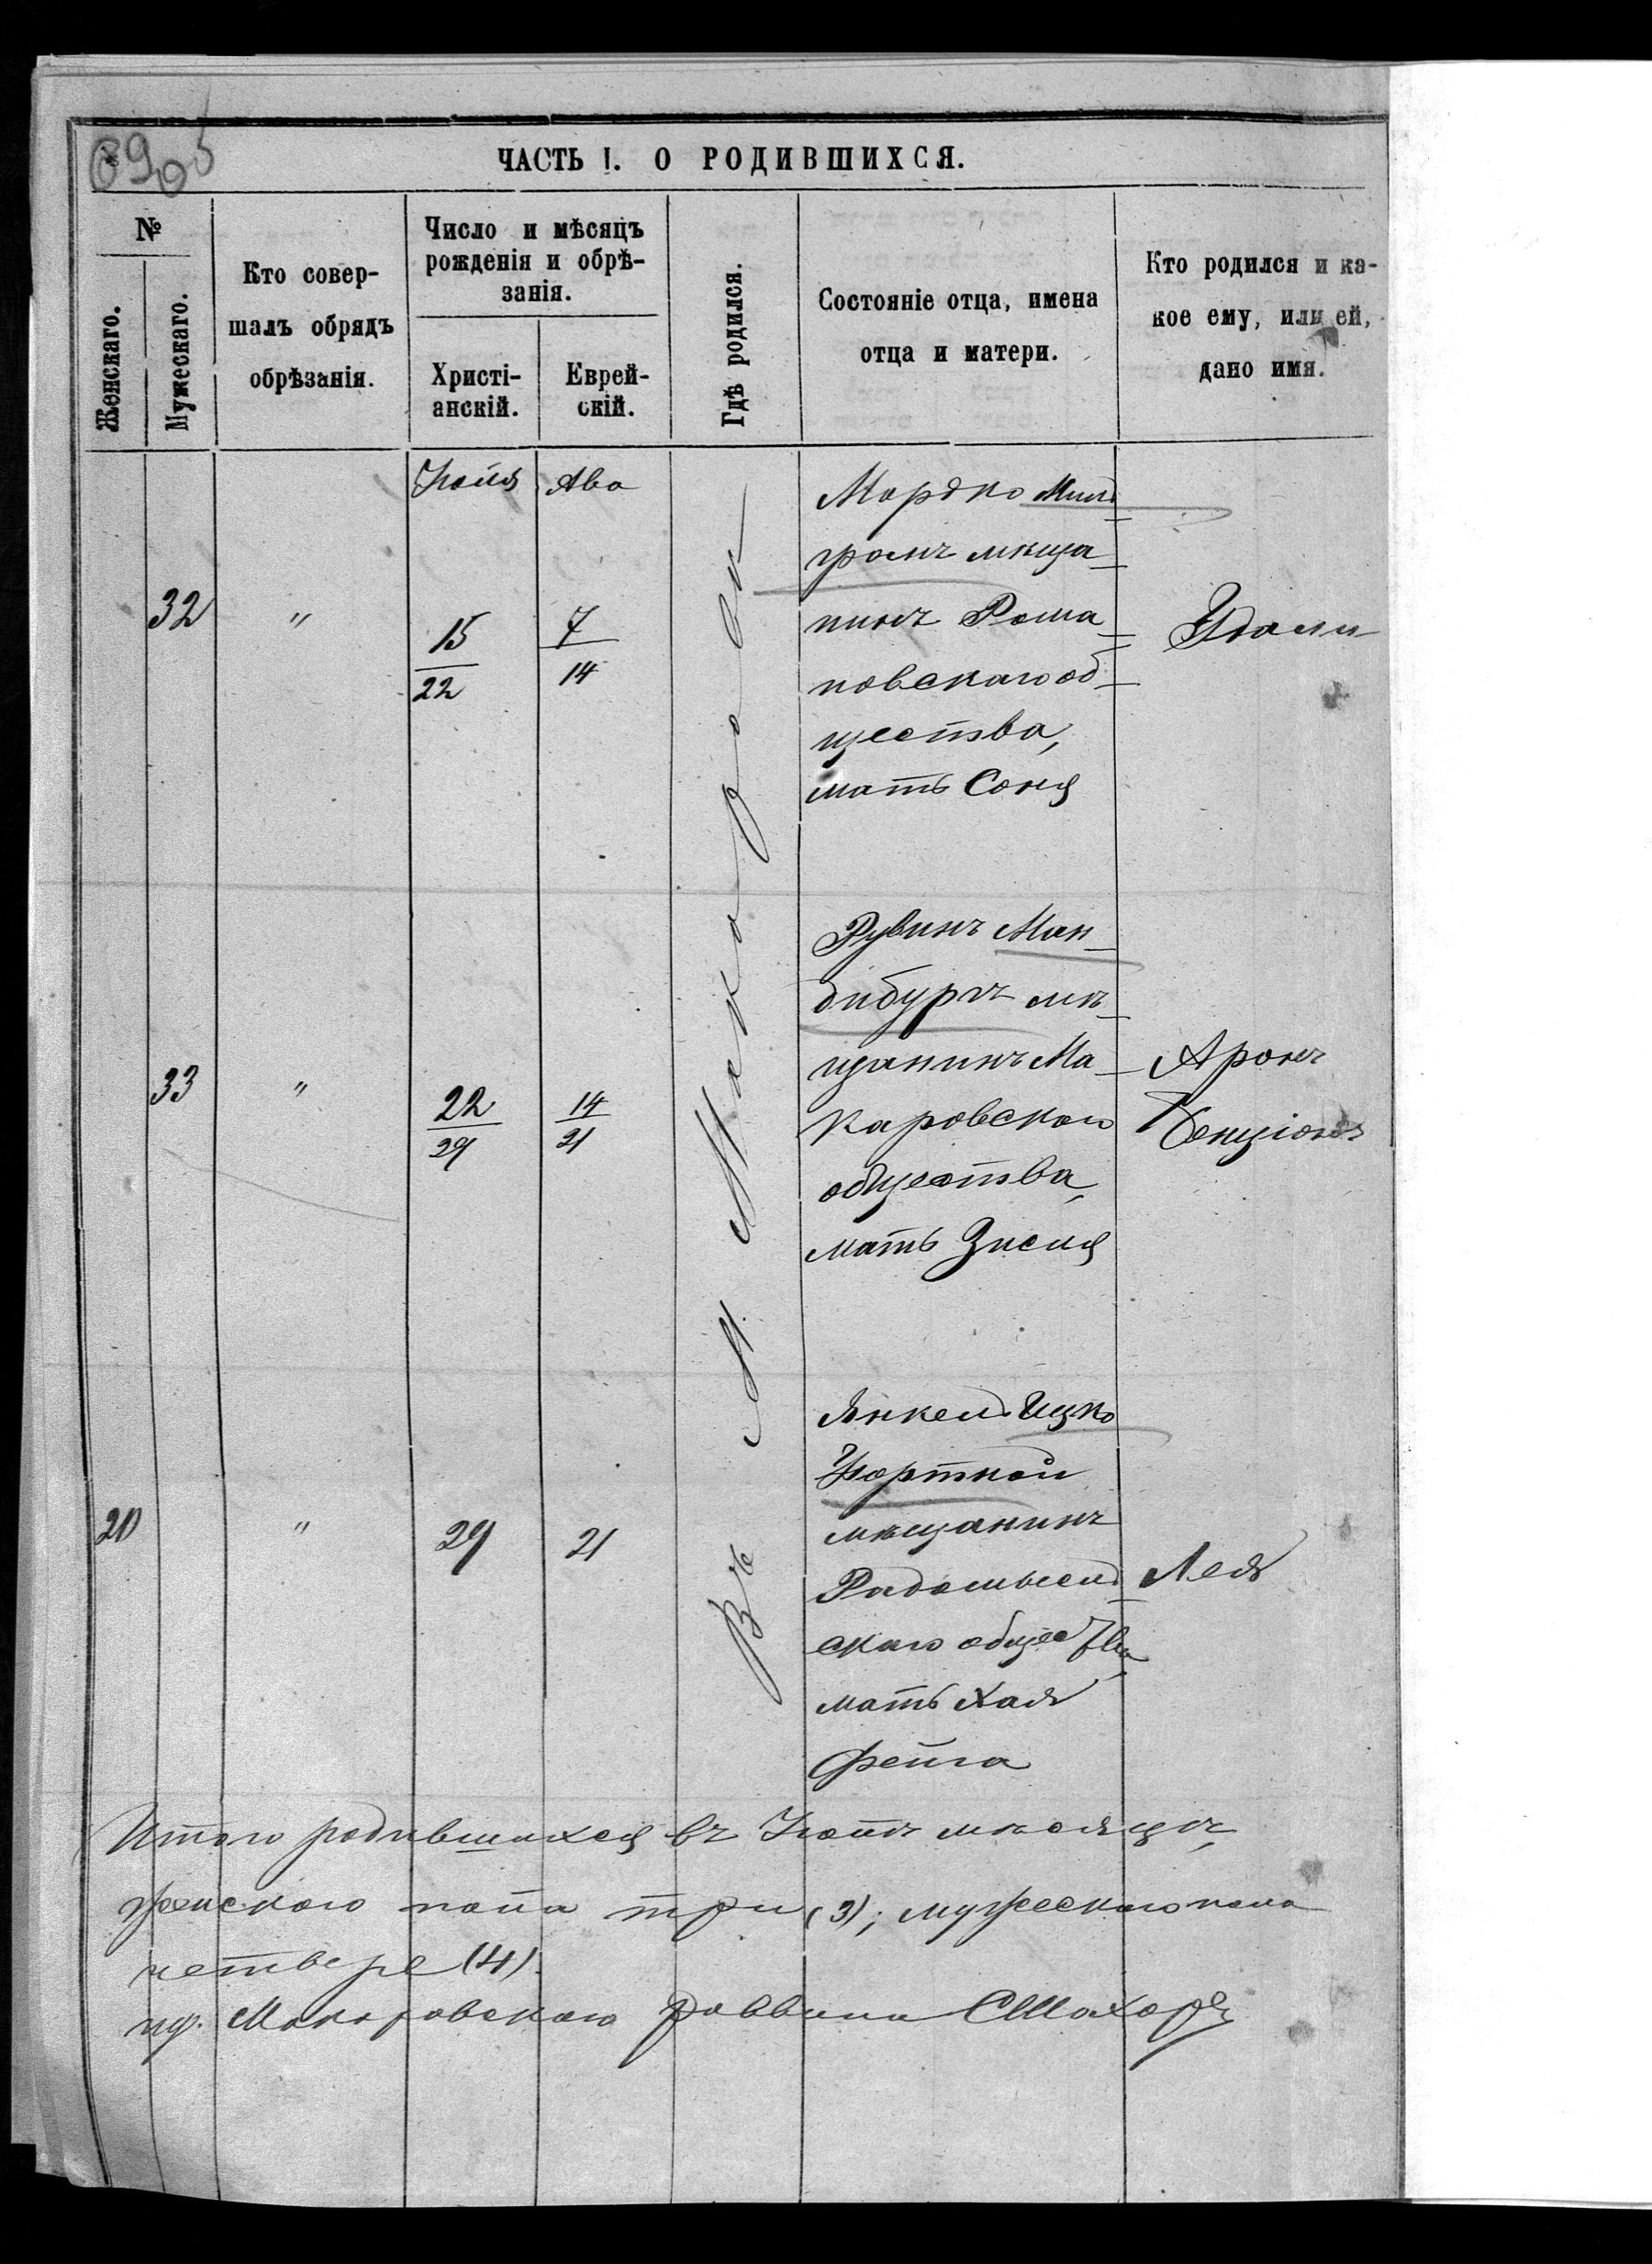 ЧАСТЬ I. О РОДИВШИХСЯ.
№
Женскаго.
Мужескаго.
Кто совер-
шалъ обрядъ
обрѣзанія.
Число и мѣсяцъ
рожденія и обрѣ-
занія.
Христі-
анскій.
Еврей-
скій.
Гдѣ родился.
Состояніе отца, имена
отца и матери.
Кто родился и ка-
кое ему, или ей,
дано имя.
Іюля
Ава
Въ М. Макаровѣ
32
"
15
22
7
14
Мордко Миль
громъ мѣща
нинъ Рома
новскаго об
щества,
мать Соня
33
"
22
29
14
21
Рувинъ Ман
дибуръ мѣ
щанинъ Ма
каровскаго
общества,
мать Зися
Аронъ
Бенціонъ
20
"
29
21
Янкель Ицко
Портной
мѣщанинъ
Радомысль
скаго общества,
мать Хая
Фейга
Лея
Итого родившихся въ Іюлѣ мѣсяцѣ,
женскаго пола три (3); мужескаго пола
четверо (4).
Макаровскаго раввина СШахоръ